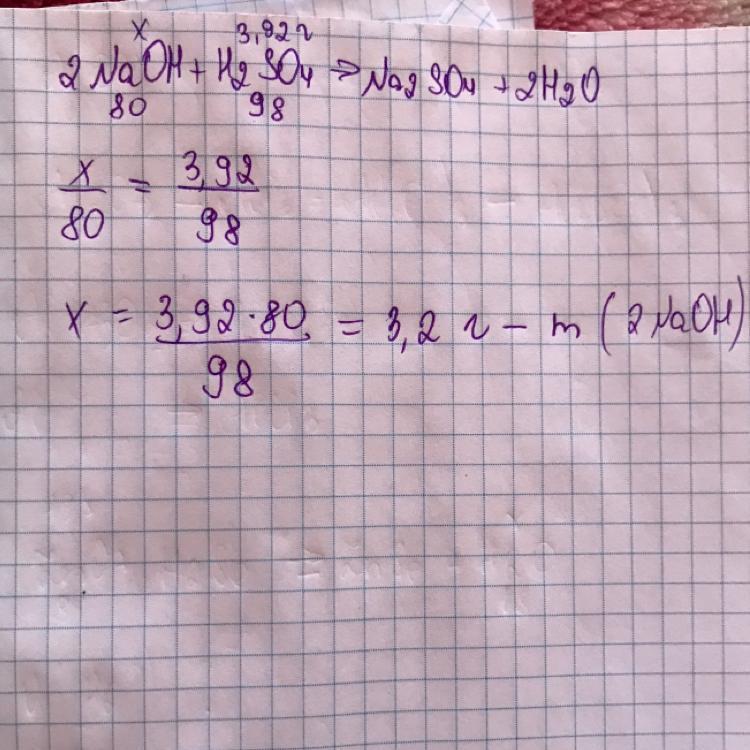 x 3,92 г
2 NaOH + H2 SO4 => Na2 SO4 + 2H2O
80 98
x/80 = 3,92/98
x = 3,92·80/98 = 3,2 г - m (2 NaOH)